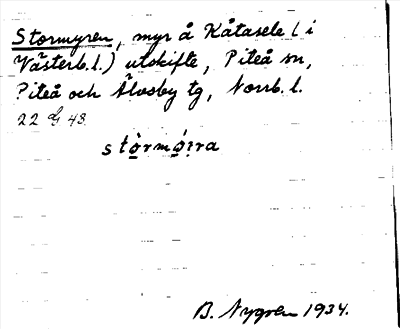 Stormyren, myr å Kåtasele (i
Västerb. l.) utskifte, Piteå sn,
Piteå och Älvsby tg, Norrb. l.
22 G 43
stòrmó̱ṛra
B. Nygren 1934.